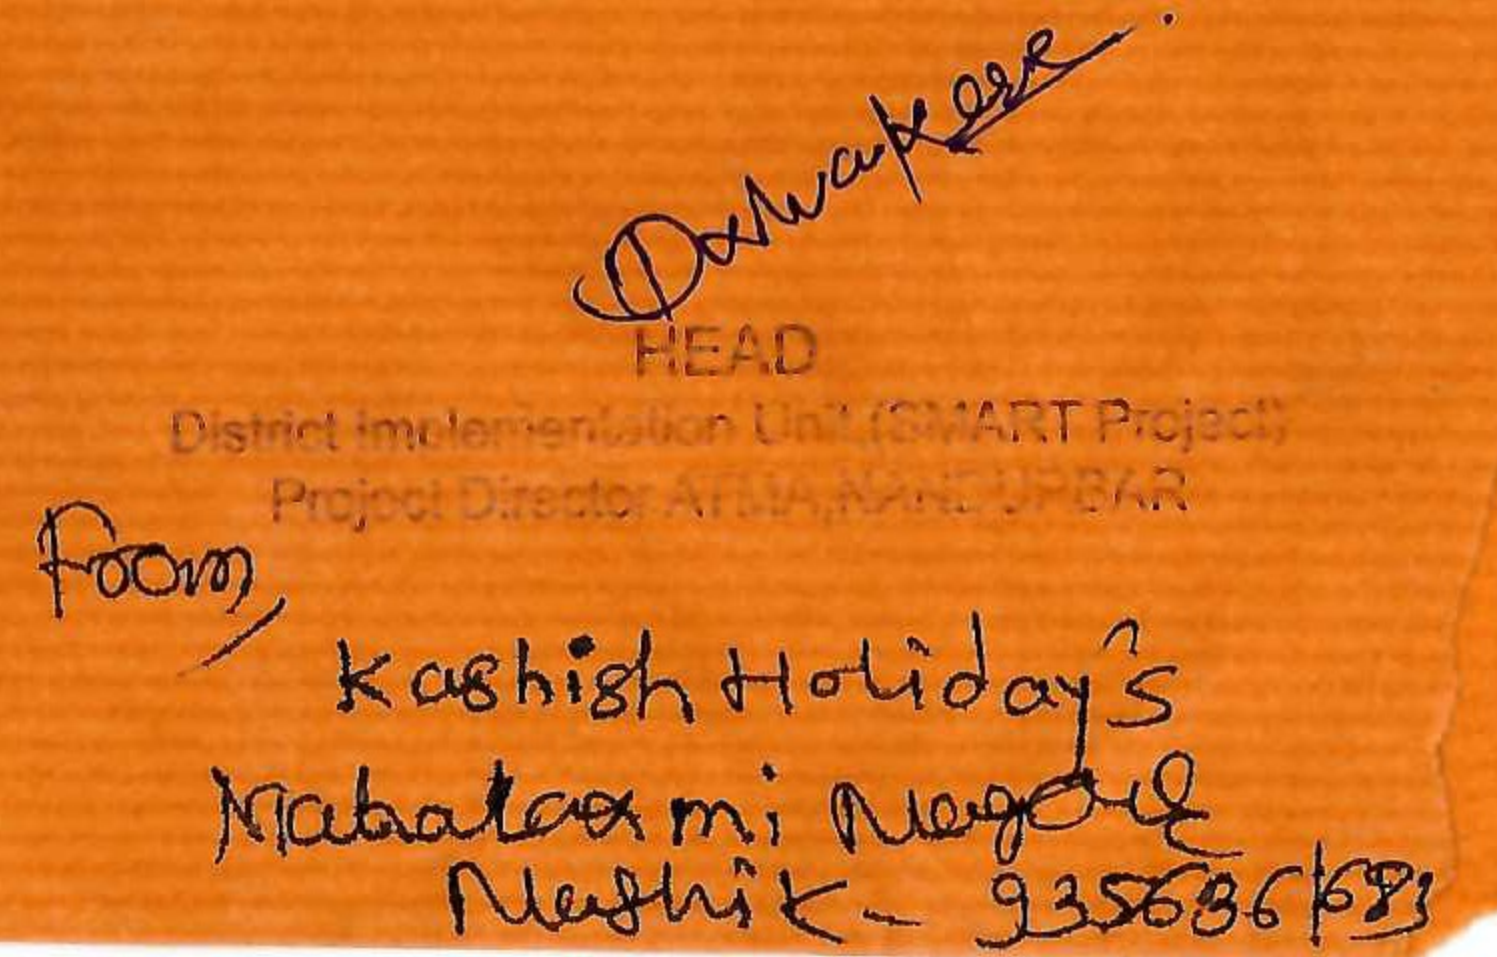 HEAD
District Implementation Unit (SMART Project)
Project Director ATMA, NANDURBAR
From,
Kashish Holiday's
Mahalaxmi Nagar
Nashik - 9356361683